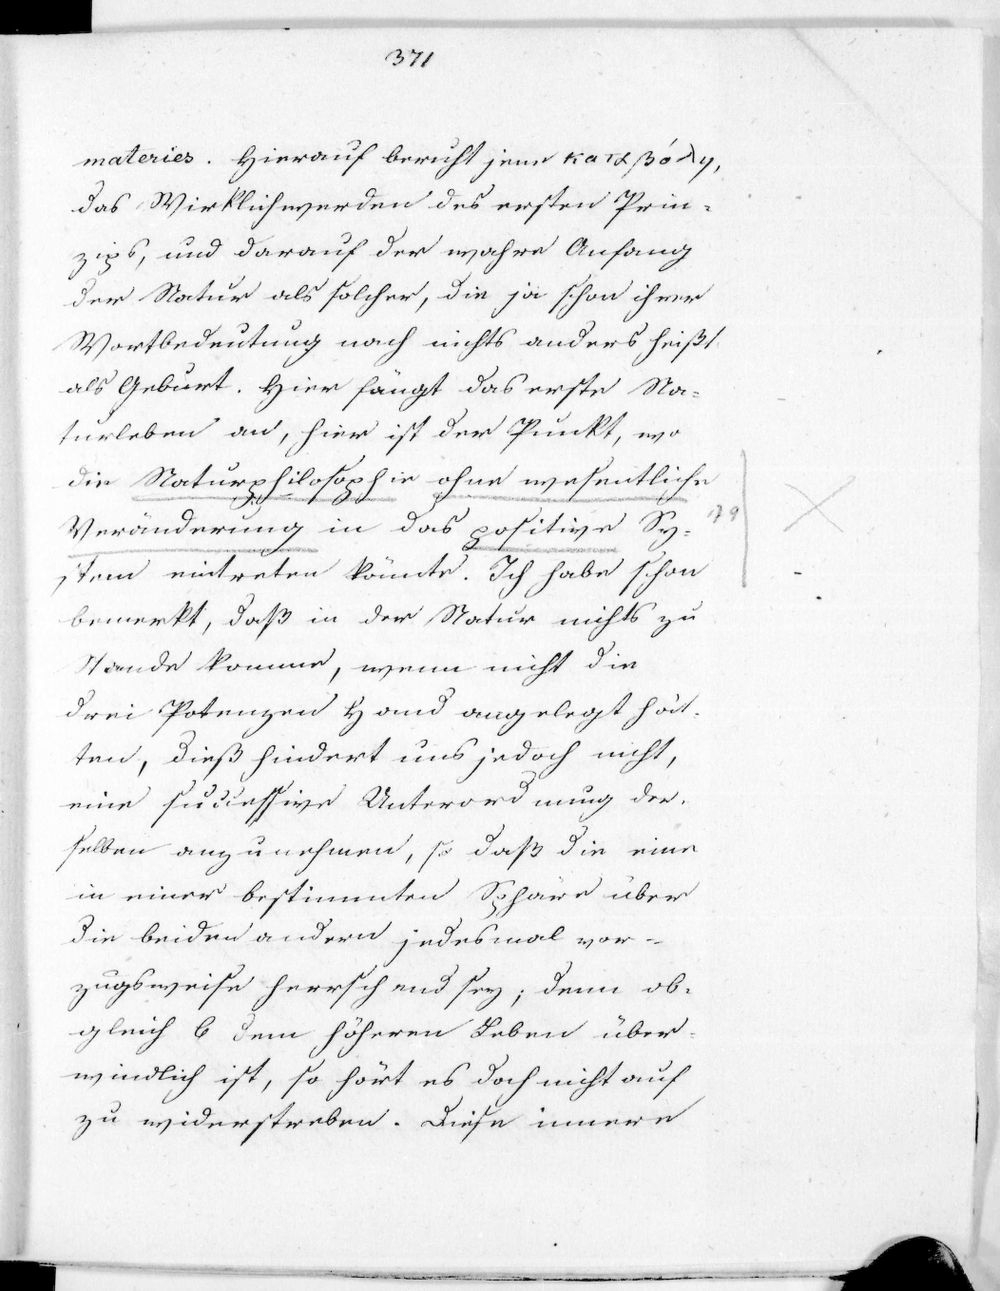 371
materies. Hierauf beruht jene καταβόλη,
das Wirklichwerden des ersten Prin-
zips, und darauf der wahre Anfang
der Natur als solcher, die ja schon ihrer
Wortbedeutung nach nichts anders heißt
als Geburt. Hier fängt das erste Na-
turleben an, hier ist der Punkt, wo
die Naturphilosophie ohne wesentliche
Veränderung in das positive Sy-
stem eintreten könnte. Ich habe schon
bemerkt, daß in der Natur nichts zu
Stande komme, wenn nicht die
drei Potenzen Hand angelegt hät-
ten, dieß hindert uns jedoch nicht,
eine successive Unterordnung der-
selben anzunehmen, so daß die eine
in einer bestimmten Sphäre über
die beiden andern jedesmal vor-
zugsweise herrschend sey; denn ob-
gleich b dem höheren Leben über-
windlich ist, so hört es doch nicht auf
zu widerstreben. Diese innere